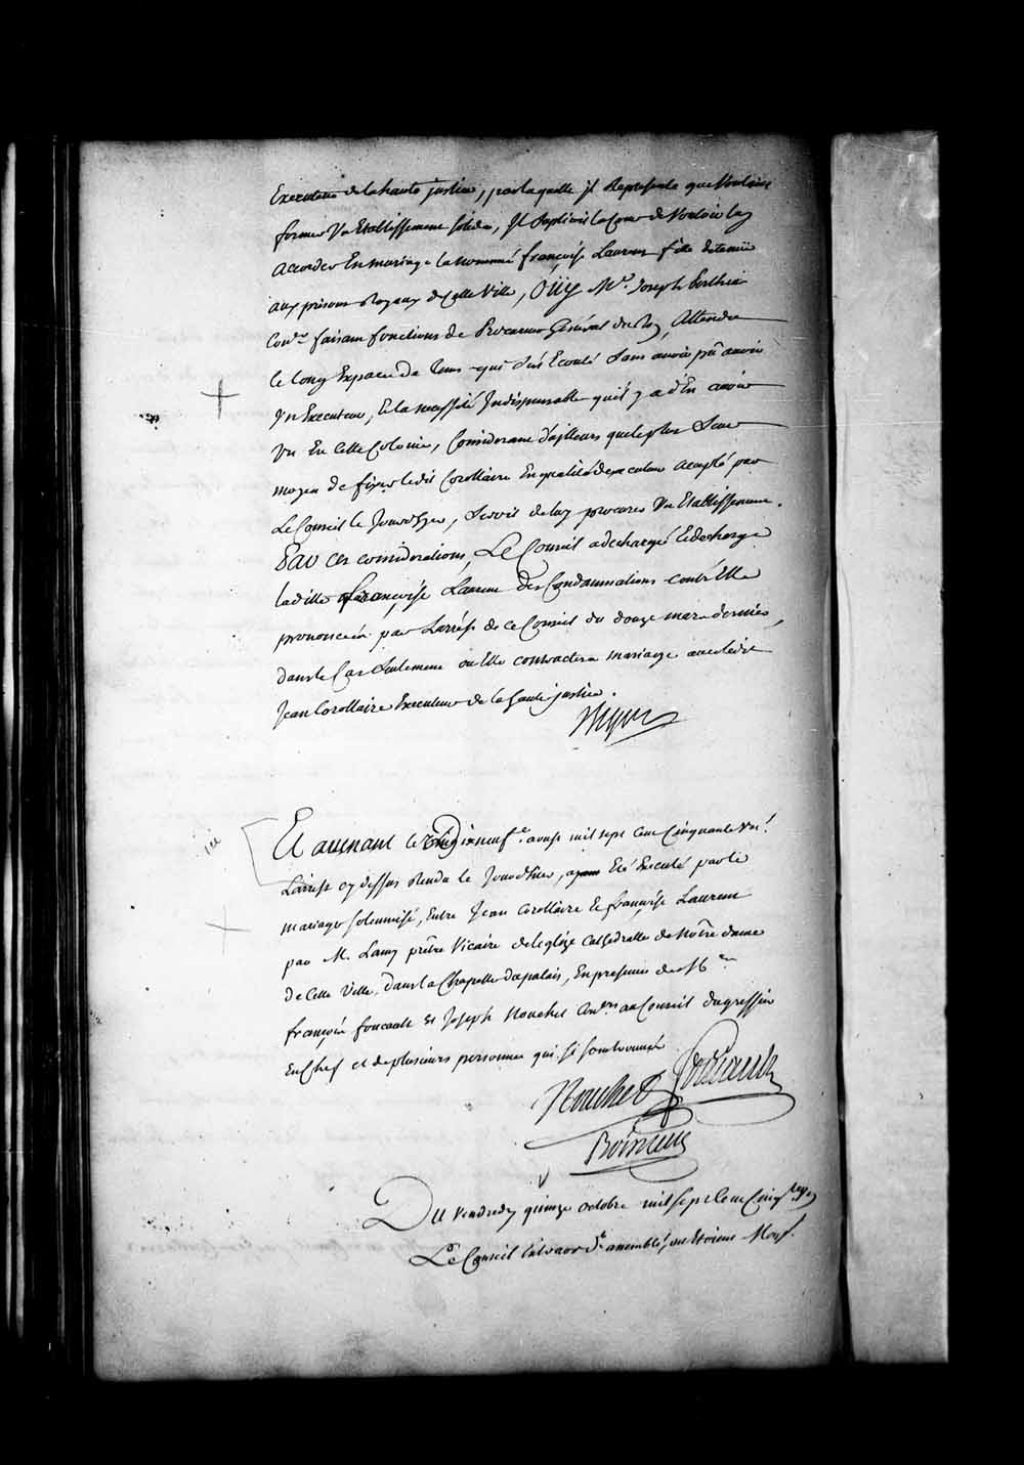 Executeur de la haute justice, par laquelle jl Represente que voulant
former Un Etablissement solide, jl suplioit la Cour de vouloir luy
accorder En mariage la nommée françoise Laurent fille detenüe
aux prisons Royaux de Cette Ville, Oüy Me. Joseph Perthuis
Conr. faisant fonctions de Procureur General du Roy, Attendu
le long Espace de tems qui s'est Ecoulé sans avoir pû avoir
Un Executeur, Et la necessité Indispensable qu'il y a d'En avoir
Un En Cette Colonie, Considerant d'ailleurs que le plus seur
moyen de fixer ledit Corollaire En qualité d'executeur accepté par
Le Conseil Ce Jourdhuy, seroit de luy procurer Un Etablissement.
Par ces considerations, Le Conseil a dechargé Et decharge
ladite françoise Laurent des Condamnations contr'Elle
prononcées par L'arrest de ce Conseil du douze mars dernier,
dans le Cas seulement où Elle contractera mariage avec ledit
Jean Corollaire Executeur de la haute justice.
Et avenant le Dixneufe. aoust mil sept Cent Cinquante Un!
L'arrest cy dessus Rendu le Jourdhier, ayant Eté Executé par le
mariage solemnisé, Entre Jean Corollaire Et françoise Laurent
par M. Lamy prêtre Vicaire de l'eglize Cathedralle de Nôtre dame
de Cette Ville, dans la Chapelle du palais, En presence de Mrs.
françois foucault Et Joseph Nouchet Conrs. au Conseil du greffier
En Chef et de plusieurs personnes qui si sont trouvées
Nouchet Foucault
Boisseau
Du Vendredy quinze octobre mil sept Cent Cinqte. un
Le Conseil Extraordre. assemblé, où Etoient Mrs.